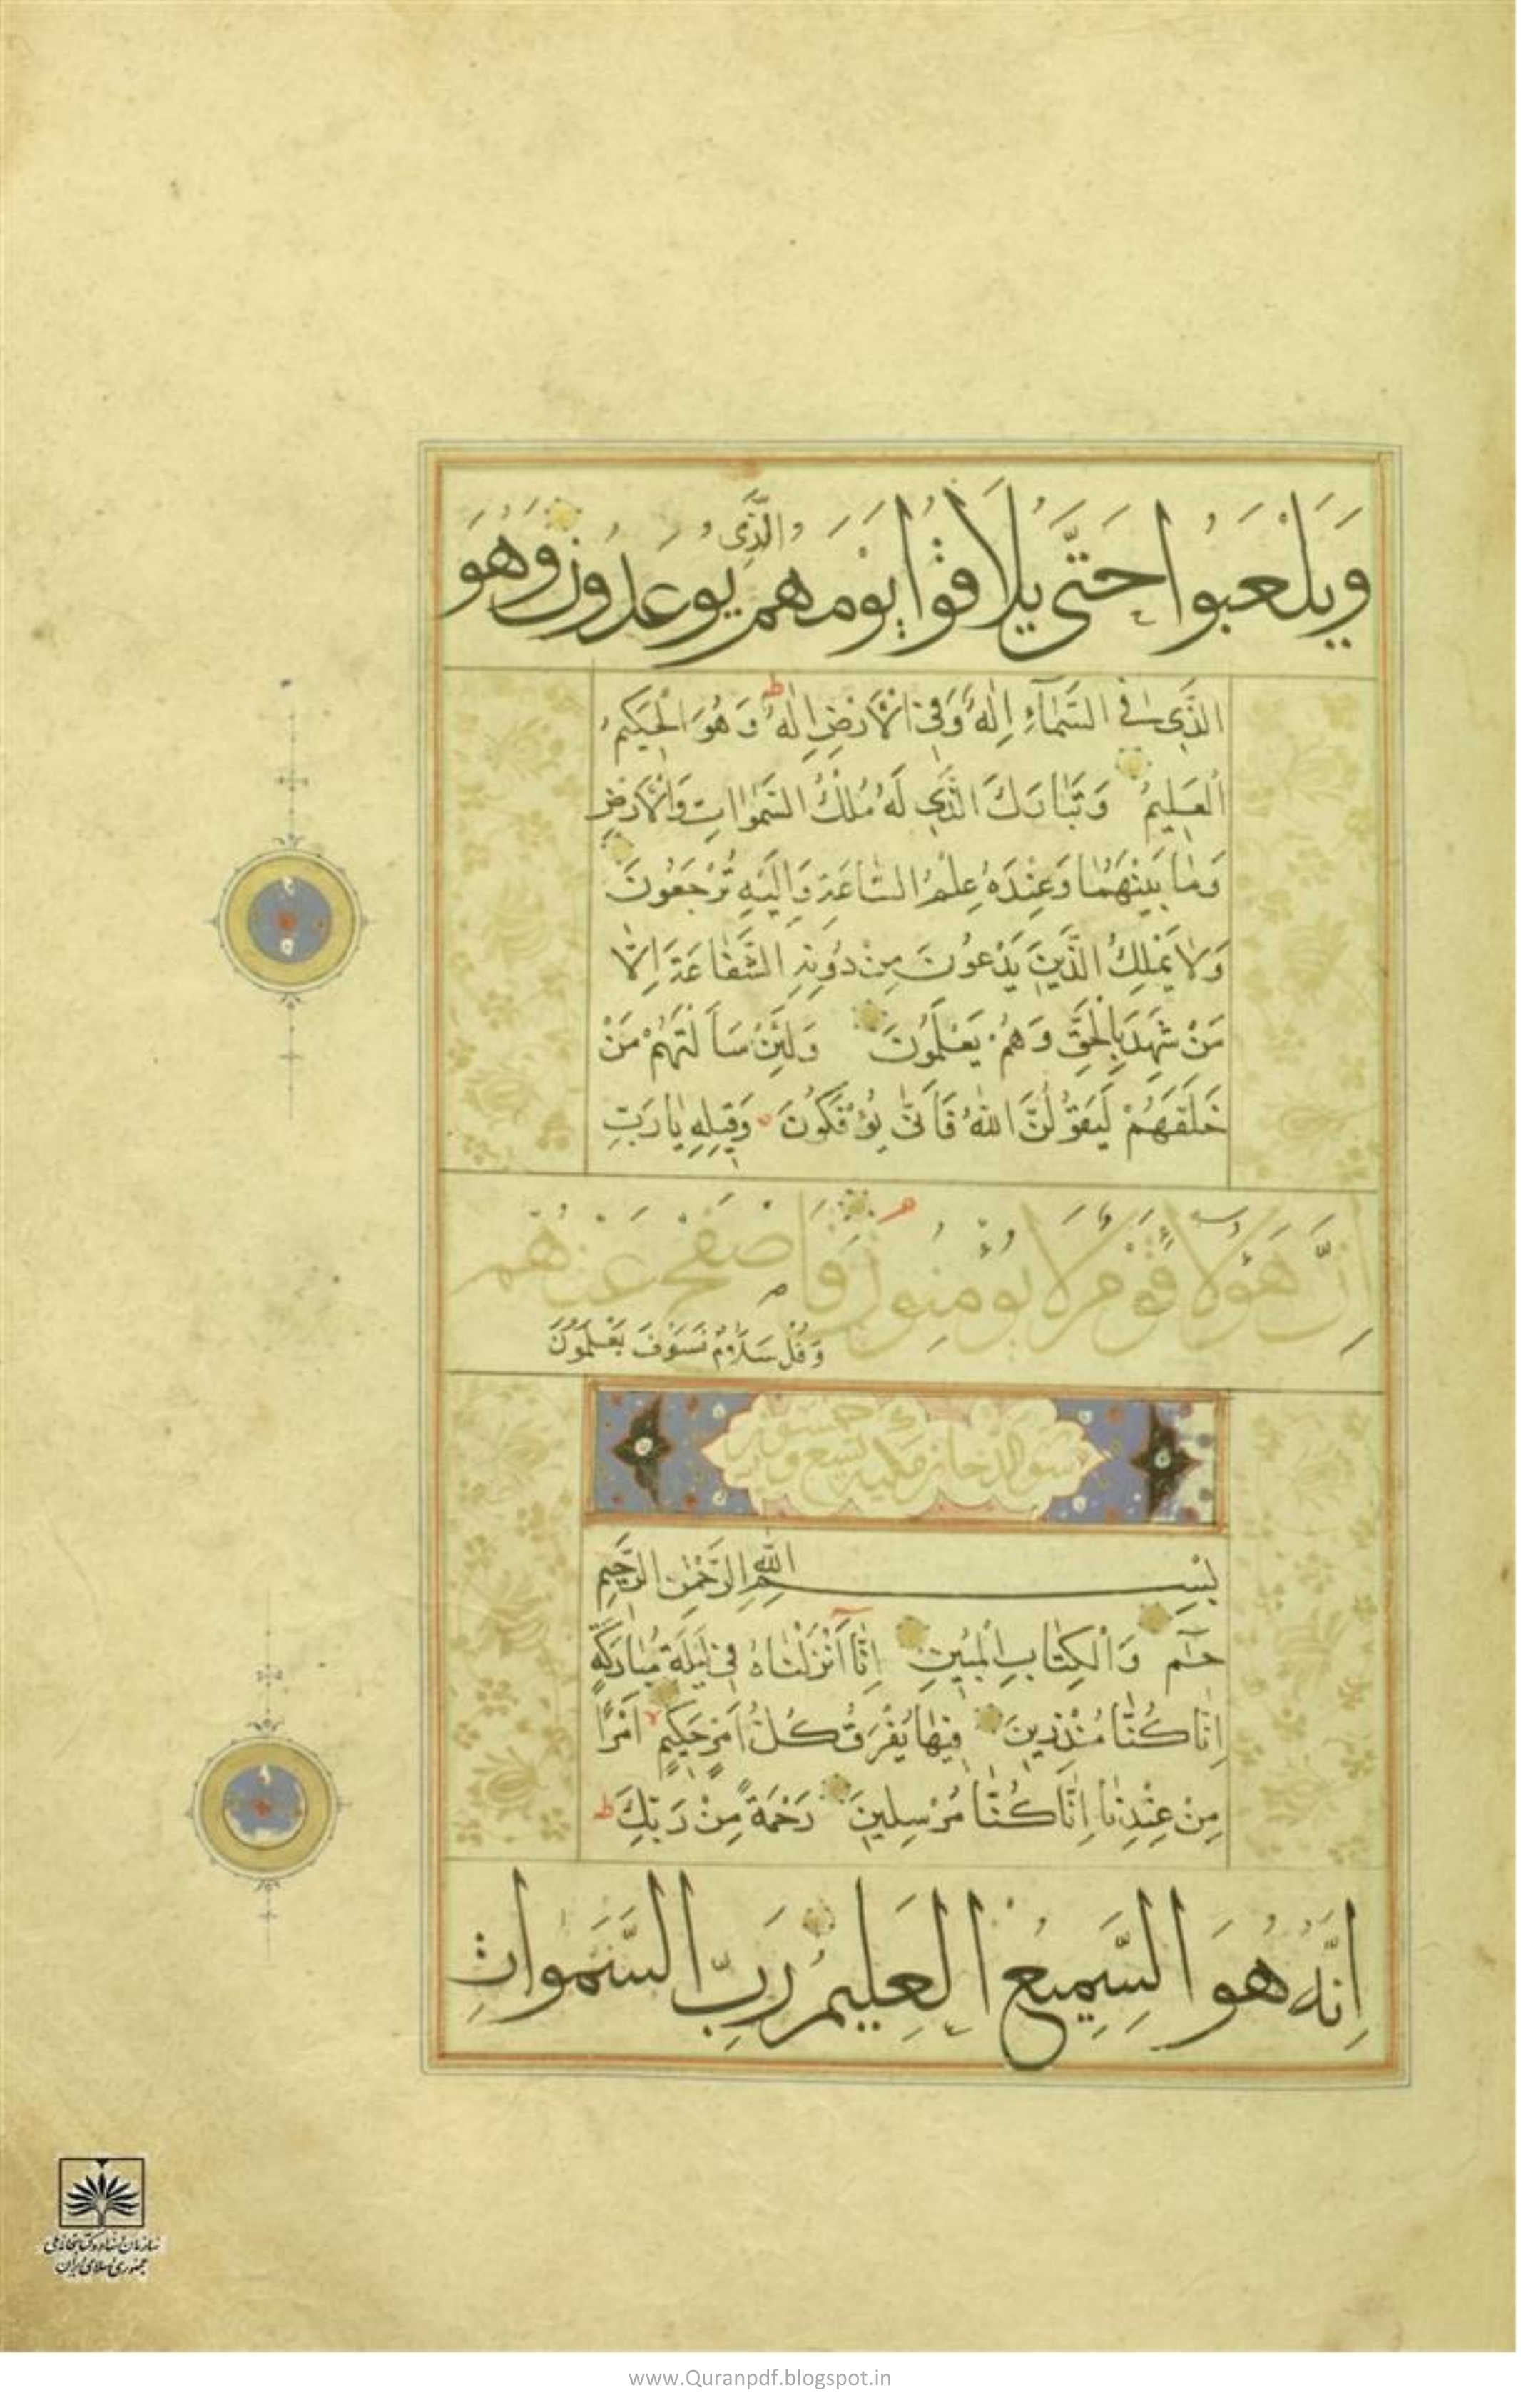 وَيَلْعَبُوا حَتَّى يُلَاقُوا يَوْمَهُمُ الَّذِى يُوعَدُونَ وَهُوَ
الَّذِى فِى السَّمَآءِ إِلٰهٌ وَفِى الْأَرْضِ إِلٰهٌ ط وَهُوَ الْحَكِيمُ
الْعَلِيمُ وَتَبَارَكَ الَّذِى لَهُ مُلْكُ السَّمٰوَاتِ وَالْأَرْضِ
وَمَا بَيْنَهُمَا وَعِنْدَهُ عِلْمُ السَّاعَةِ وَإِلَيْهِ تُرْجَعُونَ
وَلَا يَمْلِكُ الَّذِينَ يَدْعُونَ مِنْ دُونِهِ الشَّفَاعَةَ إِلَّا
مَنْ شَهِدَ بِالْحَقِّ وَهُمْ يَعْلَمُونَ وَلَئِنْ سَأَلْتَهُمْ مَنْ
خَلَقَهُمْ لَيَقُولُنَّ اللهُ فَأَنَّى يُؤْفَكُونَ وَقِيلِهِ يَا رَبِّ
إِنَّ هٰؤُلَاءِ قَوْمٌ لَا يُؤْمِنُونَ فَاصْفَحْ عَنْهُمْ
وَقُلْ سَلَامٌ فَسَوْفَ يَعْلَمُونَ
سورة الدخان مكية تسع و
بِسْمِ اللهِ الرَّحْمٰنِ الرَّحِيمِ
حٰمٓ وَالْكِتَابِ الْمُبِينِ إِنَّا أَنْزَلْنَاهُ فِى لَيْلَةٍ مُبَارَكَةٍ
إِنَّا كُنَّا مُنْذِرِينَ فِيهَا يُفْرَقُ كُلُّ أَمْرٍ حَكِيمٍ لا أَمْرًا
مِنْ عِنْدِنَا إِنَّا كُنَّا مُرْسِلِينَ رَحْمَةً مِنْ رَبِّكَ ط
إِنَّهُ هُوَ السَّمِيعُ الْعَلِيمُ رَبِّ السَّمٰوَاتِ
سازمان اسناد و کتابخانه ملی
جمهوری اسلامی ایران
www.Quranpdf.blogspot.in